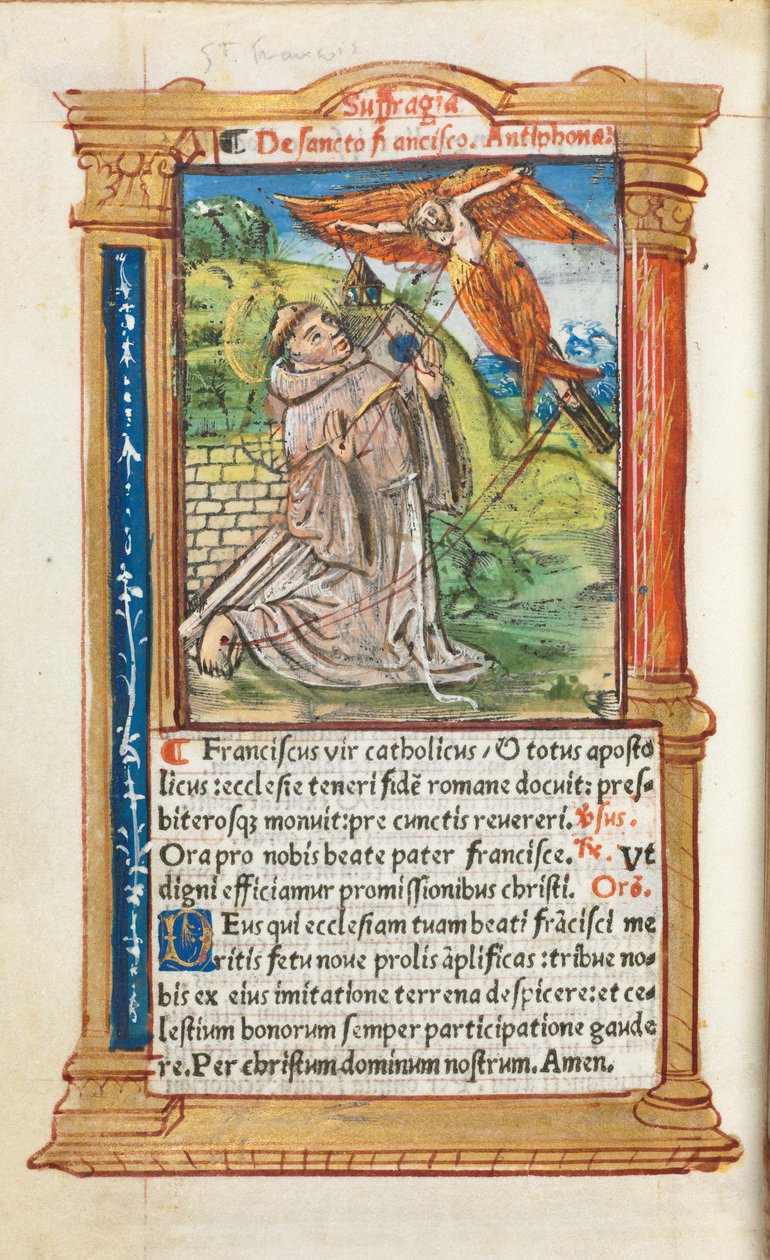 St François
Suffragia
¶ De sancto francisco. Antiphona:
¶ Franciſcus vir catholicus / & totus apoſto
licus : eccleſie teneri fidē romane docuit: preſ-
biteroſqꝫ monuit: pre cunctis reuereri. V̾ſus.
Ora pro nobis beate pater franciſce. ℟. Vt
digni efficiamur promiſſionibus chriſti. Orō.
DEus qui eccleſiam tuam beati frāciſci me
ritis fetu noue prolis āplificas : tribue no-
bis ex eius imitatione terrena deſpicere: et ce-
leſtium bonorum ſemper participatione gaude
re. Per chriſtum dominum noſtrum. Amen.